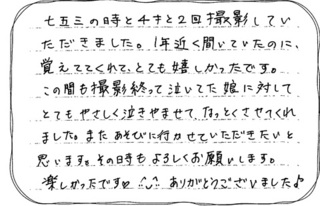 七五三の時と4才と2回撮影してい
ただきました。1年近く開いていたのに、
覚えててくれて、とても嬉しかったです。
この間も撮影終って泣いてた娘に対して
とてもやさしく泣きやませて、なっとくさせてくれ
ました。またあそびに行かせていただきたいと
思います。その時もよろしくお願いします。
楽しかったです♡ ^_^ ありがとうございました♪